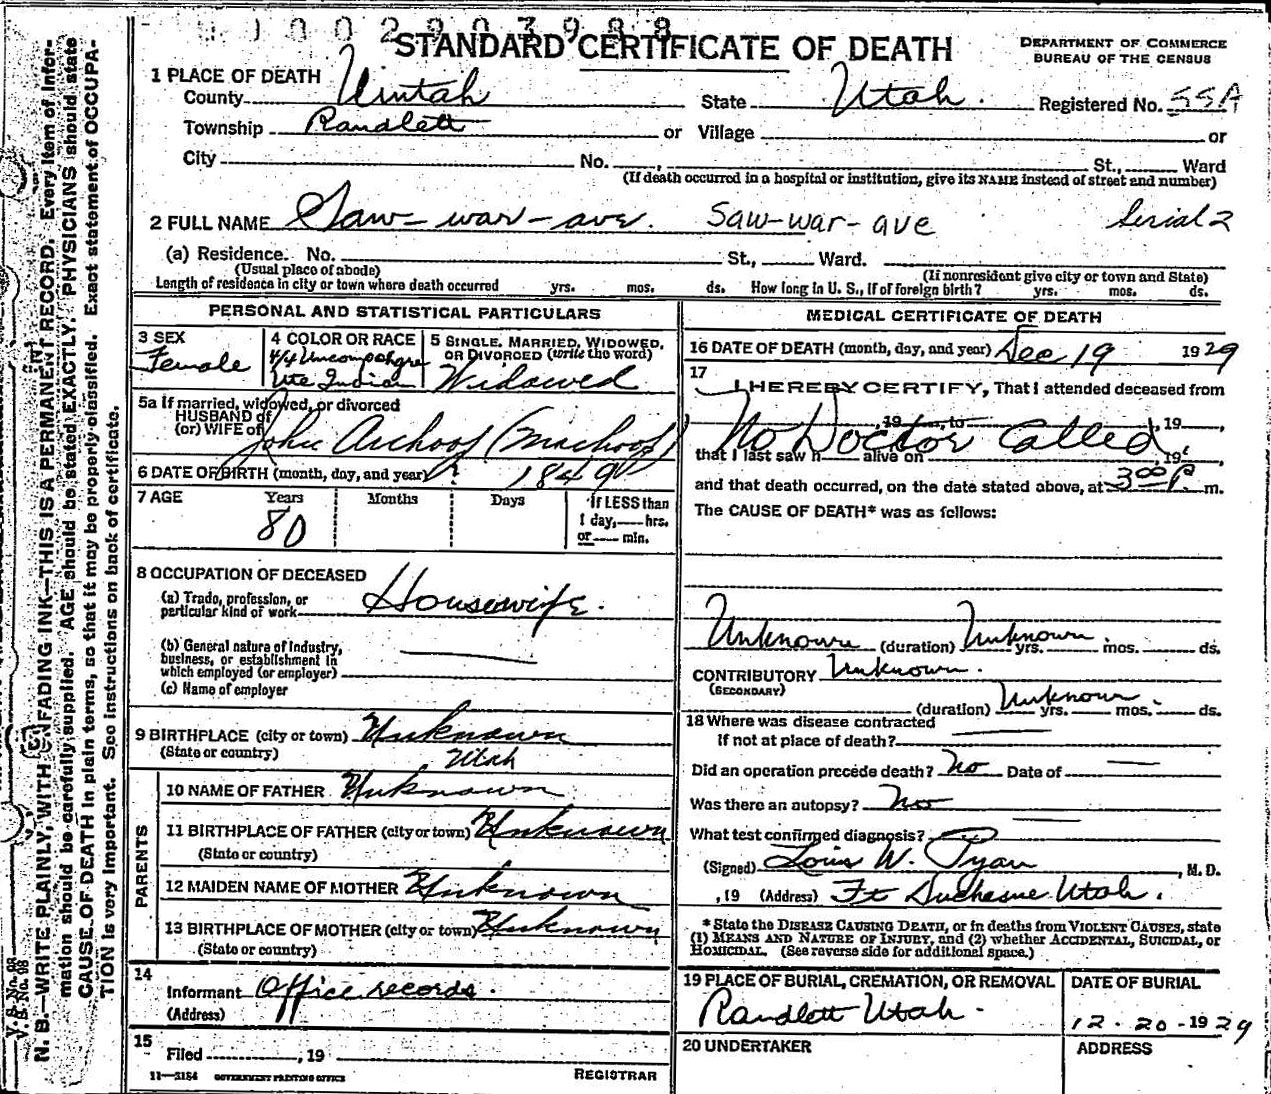 STANDARD CERTIFICATE OF DEATH
DEPARTMENT OF COMMERCE
BUREAU OF THE CENSUS
1 PLACE OF DEATH
County Uintah State Utah. Registered No. 55A
Township Randlett or Village or
City No. , St., Ward
(If death occurred in a hospital or institution, give its NAME instead of street and number)
2 FULL NAME Saw-war-ave. Saw-war-ave Serial 2
(a) Residence. No. St., Ward.
(Usual place of abode) (If nonresident give city or town and State)
Length of residence in city or town where death occurred yrs. mos. ds. How long in U. S., if of foreign birth? yrs. mos. ds.
PERSONAL AND STATISTICAL PARTICULARS
3 SEX
Female
4 COLOR OR RACE
4/4 Uncompahgre
Ute Indian
5 SINGLE, MARRIED, WIDOWED, OR DIVORCED (write the word)
Widowed
5a If married, widowed, or divorced
HUSBAND of
(or) WIFE of John Archoop (Machoop)
6 DATE OF BIRTH (month, day, and year) ? 1849
7 AGE Years Months Days If LESS than
1 day, hrs.
or min.
80
8 OCCUPATION OF DECEASED
(a) Trade, profession, or
particular kind of work Housewife.
(b) General nature of industry,
business, or establishment in
which employed (or employer)
(c) Name of employer
9 BIRTHPLACE (city or town) Unknown
(State or country) Utah
PARENTS
10 NAME OF FATHER Unknown
11 BIRTHPLACE OF FATHER (city or town) Unknown
(State or country)
12 MAIDEN NAME OF MOTHER Unknown
13 BIRTHPLACE OF MOTHER (city or town) Unknown
(State or country)
14
Informant Office records.
(Address)
15
Filed , 19
REGISTRAR
11—3184 GOVERNMENT PRINTING OFFICE
MEDICAL CERTIFICATE OF DEATH
16 DATE OF DEATH (month, day, and year) Dec 19 1929
17
I HEREBY CERTIFY, That I attended deceased from
, 19 , to , 19 ,
No Doctor Called
that I last saw h alive on , 19 ,
and that death occurred, on the date stated above, at 3:00 P. m.
The CAUSE OF DEATH* was as follows:
Unknown (duration) Unknown. yrs. mos. ds.
CONTRIBUTORY Unknown.
(SECONDARY)
(duration) Unknown. yrs. mos. ds.
18 Where was disease contracted
If not at place of death?
Did an operation precede death? No Date of
Was there an autopsy? No
What test confirmed diagnosis?
(Signed) Louis W. , M. D.
, 19 (Address) Ft Duchesne Utah.
* State the DISEASE CAUSING DEATH, or in deaths from VIOLENT CAUSES, state
(1) MEANS AND NATURE OF INJURY, and (2) whether ACCIDENTAL, SUICIDAL, or
HOMICIDAL. (See reverse side for additional space.)
19 PLACE OF BURIAL, CREMATION, OR REMOVAL
Randlett Utah.
DATE OF BURIAL
12-20-1929
20 UNDERTAKER
ADDRESS
V. S. No. 98
N. B.—WRITE PLAINLY, WITH UNFADING INK—THIS IS A PERMANENT RECORD. Every item of infor-
mation should be carefully supplied. AGE should be stated EXACTLY. PHYSICIANS should state
CAUSE OF DEATH in plain terms, so that it may be properly classified. Exact statement of OCCUPA-
TION is very important. See instructions on back of certificate.